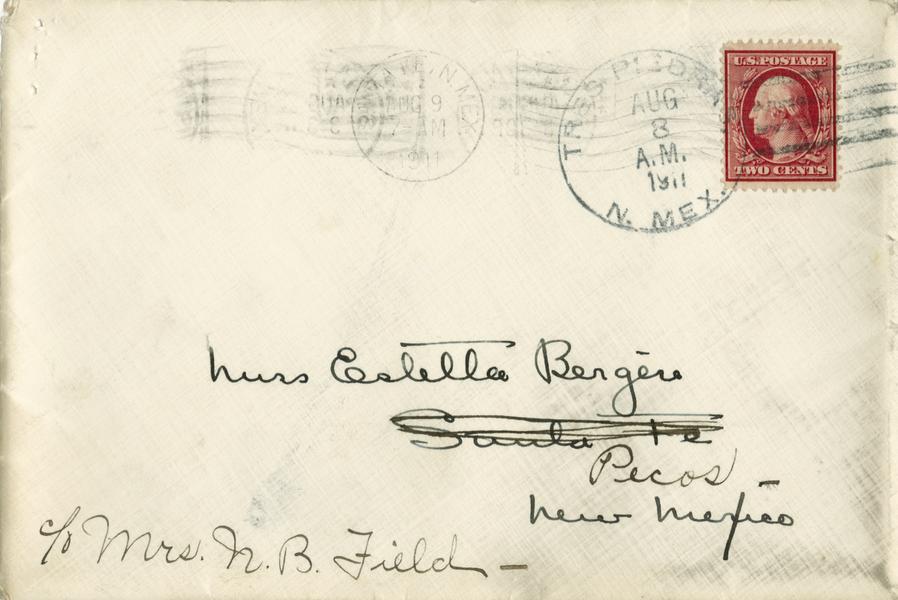 U.S. POSTAGE
TWO CENTS
TRES PIEDRAS
AUG
8
A.M.
1911
N. MEX.
SANTA FE, N. MEX.
AUG 9
7 AM
1911
Miss Estella Bergere
Santa Fe
Pecos
New Mexico
c/o Mrs. N. B. Field